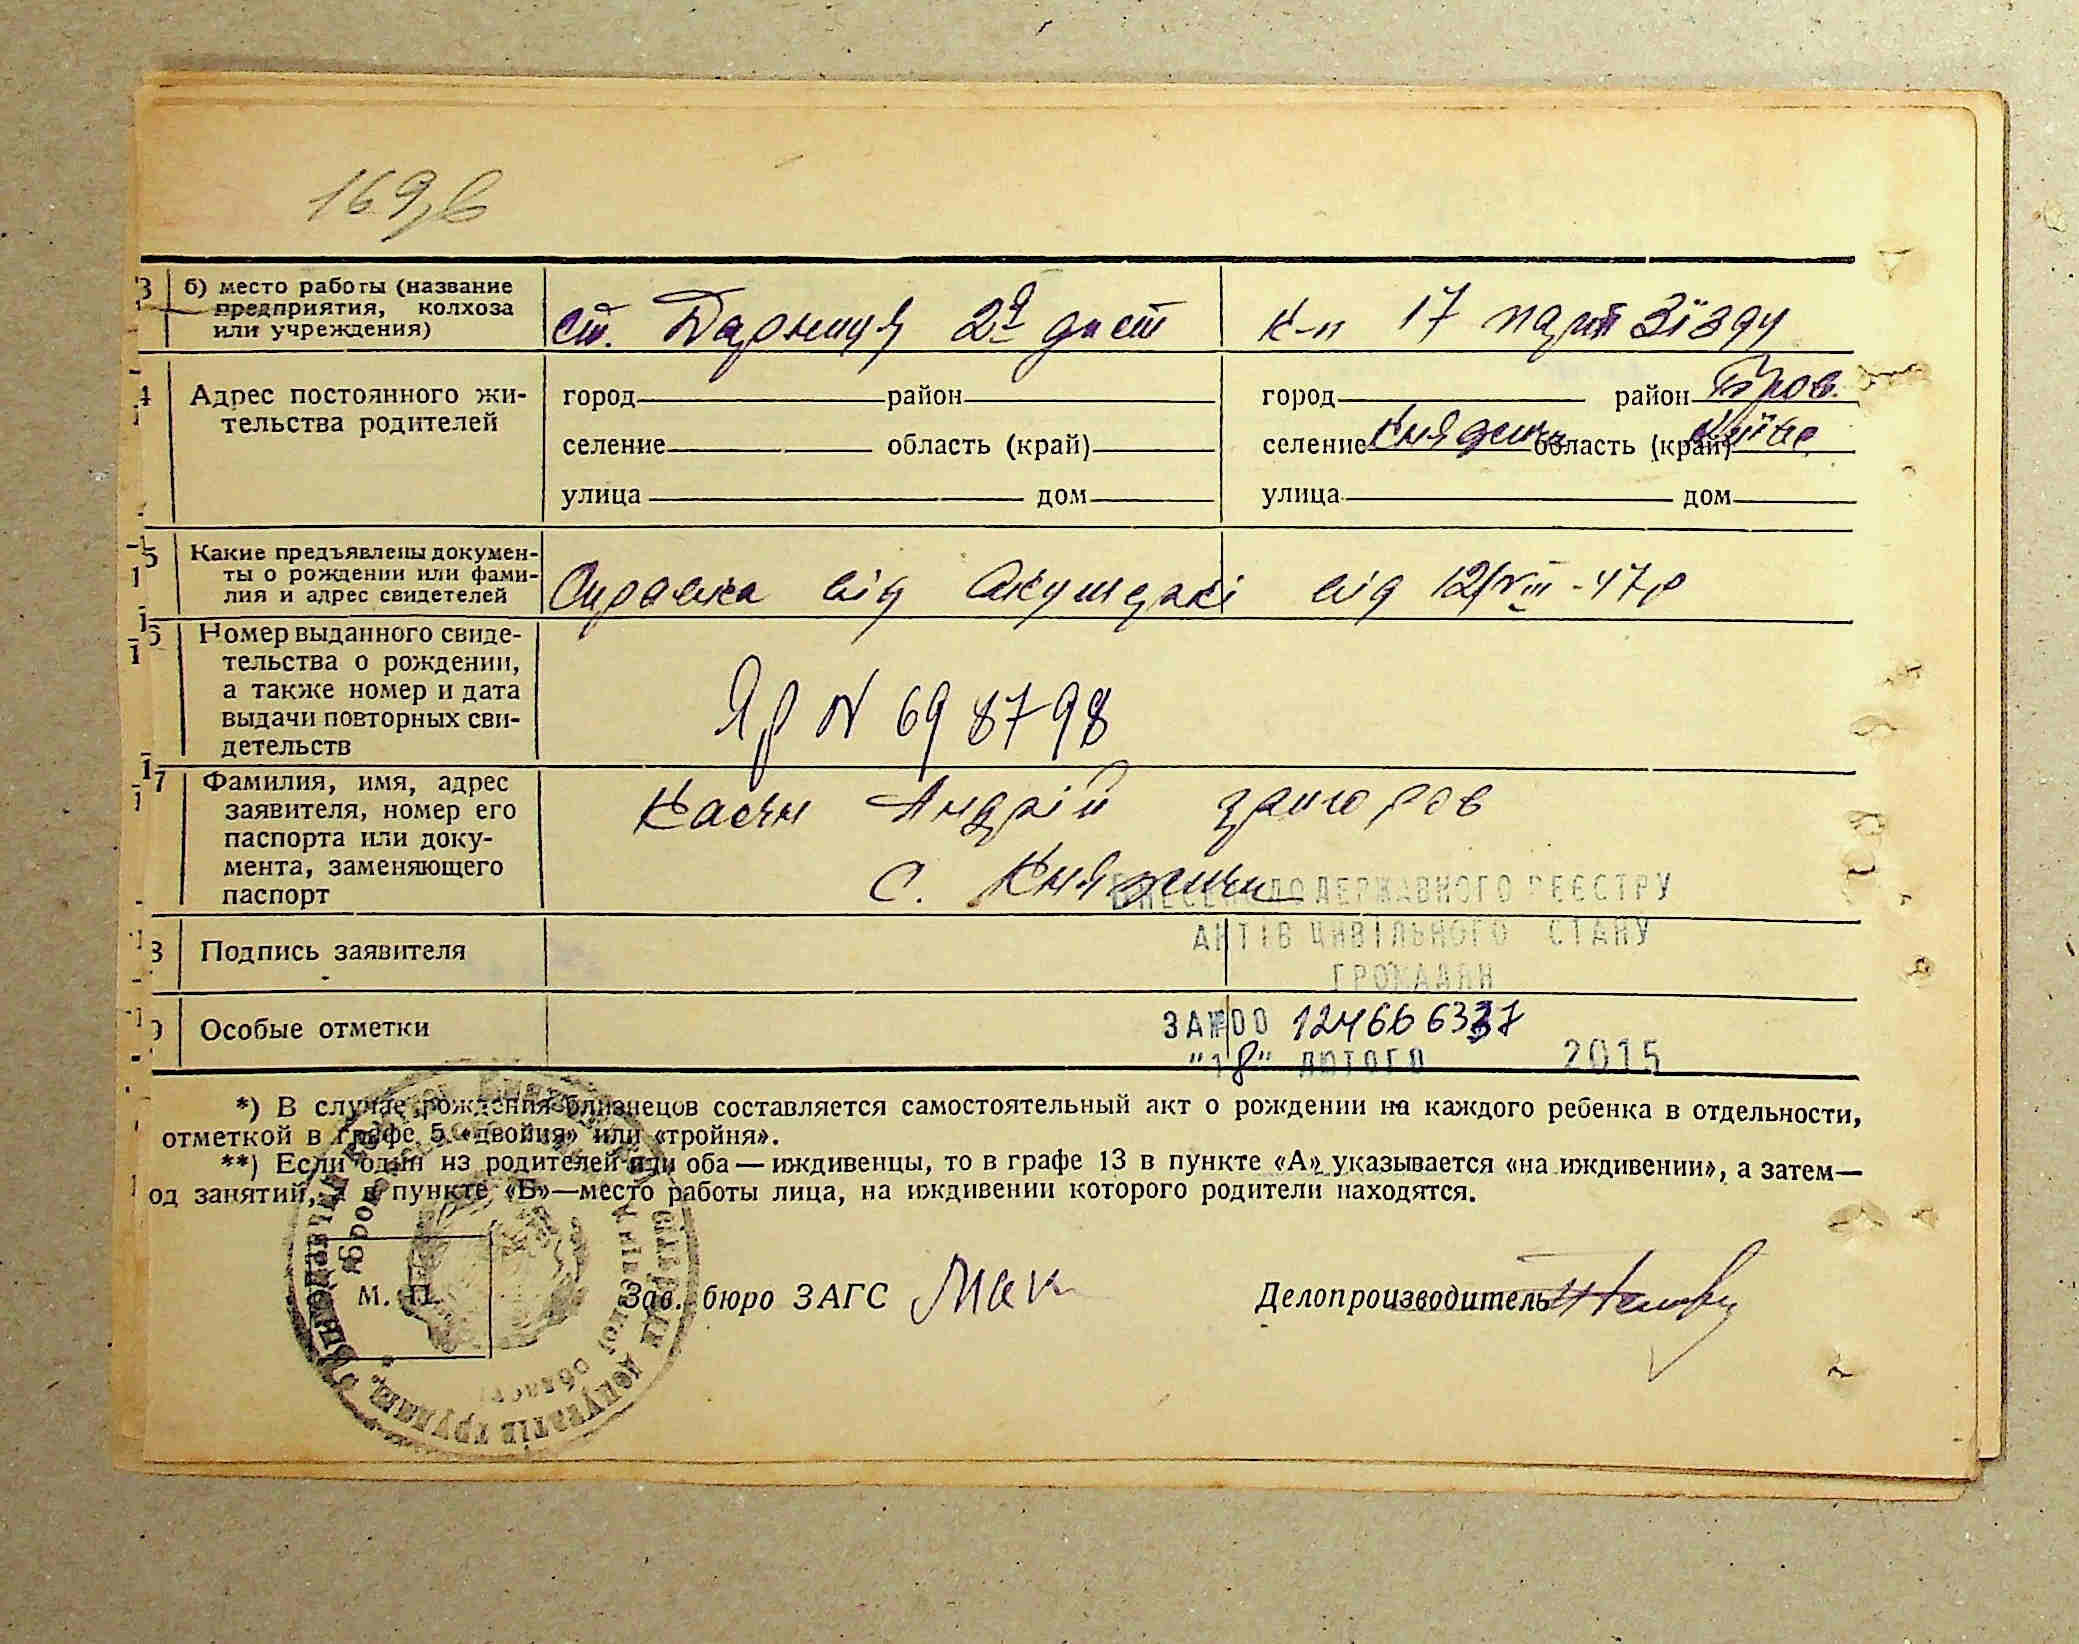 169,б
3 б) место работы (название предприятия, колхоза или учреждения) ст. Дарниця 2а дист к-п 17 парт Зїзду
4 Адрес постоянного жительства родителей
город район город район Бров.
селение область (край) селение Княжичи область (край) Київс
улица дом улица дом
5 Какие предъявлены документы о рождении или фамилия и адрес свидетелей Справка від Акушеркі від 12/VIII-47р
6 Номер выданного свиде-
тельства о рождении,
а также номер и дата
выдачи повторных сви-
детельств
ЯР N 698798
17 Фамилия, имя, адрес
заявителя, номер его
паспорта или доку-
мента, заменяющего
паспорт
Касян Андрій
с. Княжичи
ВНЕСЕНО ДО ДЕРЖАВНОГО РЕЄСТРУ
АКТІВ ЦИВІЛЬНОГО СТАНУ
ГРОМАДЯН
8 Подпись заявителя
Особые отметки
ЗА №00 124666337
"18" ЛЮТОГО 2015
*) В случае рождения близнецов составляется самостоятельный акт о рождении на каждого ребенка в отдельности,
отметкой в графе 5 «двойня» или «тройня».
**) Если один из родителей или оба — иждивенцы, то в графе 13 в пункте «А» указывается «на иждивении», а затем—
од занятий, а в пункте «Б»—место работы лица, на иждивении которого родители находятся.
М. П. Зав. бюро ЗАГС Делопроизводитель
депутатів трудящ.